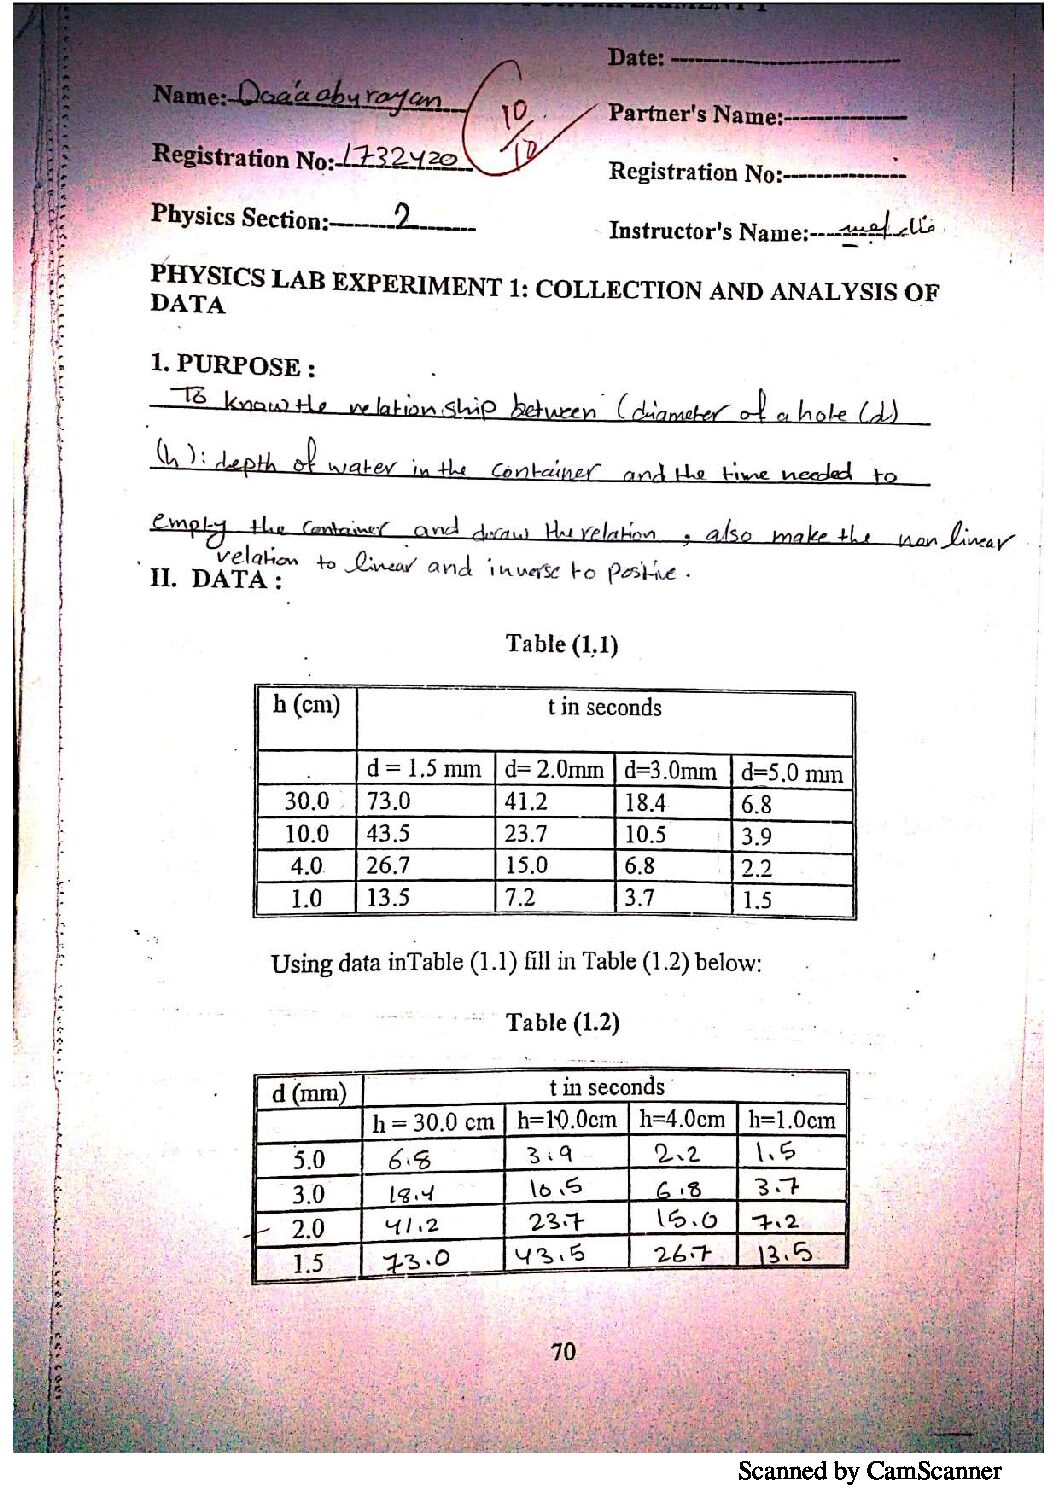 Date: ----------------
Name: Doa'a abu rayan
10/10
Partner's Name:----------------
Registration No: 1732420
Registration No:----------------
Physics Section: 2
Instructor's Name:----
PHYSICS LAB EXPERIMENT 1: COLLECTION AND ANALYSIS OF
DATA
1. PURPOSE :
To know the relation ship between (diameter of a hole (d)
(h): depth of water in the container and the time needed to
empty the container and draw the relation , also make the non linear
relation to linear and inverse to postive .
II. DATA :
Table (1.1)
h (cm) t in seconds
d = 1.5 mm d= 2.0mm d=3.0mm d=5.0 mm
30.0 73.0 41.2 18.4 6.8
10.0 43.5 23.7 10.5 3.9
4.0 26.7 15.0 6.8 2.2
1.0 13.5 7.2 3.7 1.5
Using data inTable (1.1) fill in Table (1.2) below:
Table (1.2)
d (mm) t in seconds
h = 30.0 cm h=10.0cm h=4.0cm h=1.0cm
5.0 6.8 3.9 2.2 1.5
3.0 18.4 10.5 6.8 3.7
2.0 41.2 23.7 15.0 7.2
1.5 73.0 43.5 26.7 13.5
70
Scanned by CamScanner